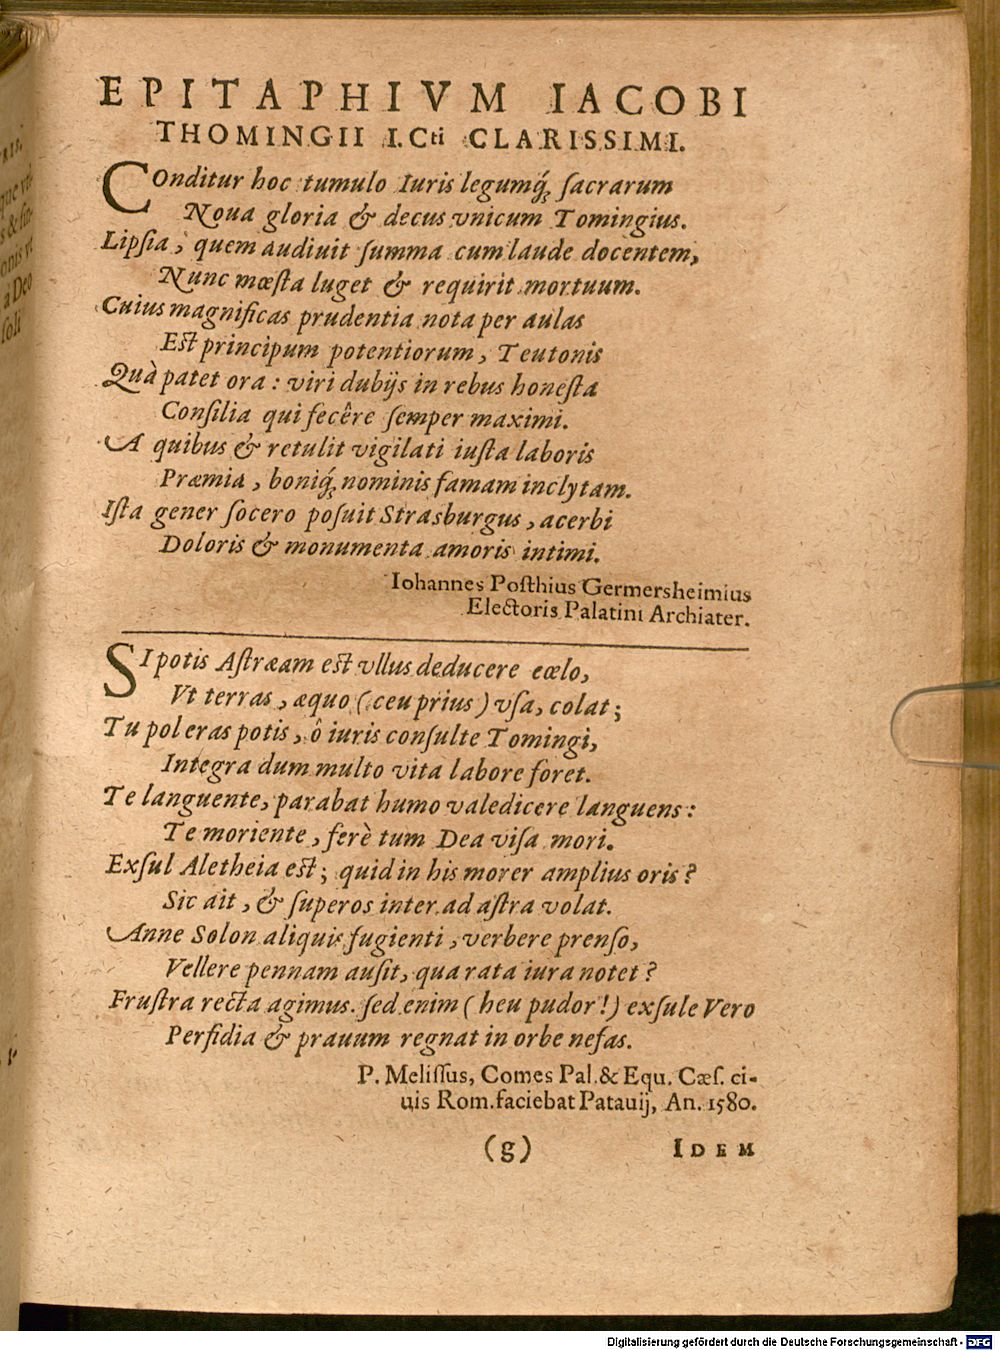 EPITAPHIVM IACOBI
THOMINGII I.Cti CLARISSIMI.
COnditur hoc tumulo Iuris legumq́; sacrarum
Noua gloria & decus vnicum Tomingius.
Lipsia, quem audiuit summa cum laude docentem,
Nunc mœsta luget & requirit mortuum.
Cuius magnificas prudentia nota per aulas
Est principum potentiorum, Teutonis
Quà patet ora: viri dubijs in rebus honesta
Consilia qui fecêre semper maximi.
A quibus & retulit vigilati iusta laboris
Præmia, boniq́; nominis famam inclytam.
Ista gener socero posuit Strasburgus, acerbi
Doloris & monumenta amoris intimi.
Iohannes Posthius Germersheimius
Electoris Palatini Archiater.
SI potis Astræam est vllus deducere cœlo,
Vt terras, æquo (ceu prius) vsa, colat;
Tu pol eras potis, ô iuris consulte Tomingi,
Integra dum multo vita labore foret.
Te languente, parabat humo valedicere languens:
Te moriente, ferè tum Dea visa mori.
Exsul Aletheia est; quid in his morer amplius oris?
Sic ait, & superos inter ad astra volat.
Anne Solon aliquis fugienti, verbere prenso,
Vellere pennam ausit, qua rata iura notet?
Frustra recta agimus. sed enim (heu pudor!) exsule Vero
Perfidia & prauum regnat in orbe nefas.
P. Melissus, Comes Pal. & Equ. Cæs. ci-
uis Rom. faciebat Patauij, An. 1580.
(g) IDEM
Digitalisierung gefördert durch die Deutsche Forschungsgemeinschaft - DFG